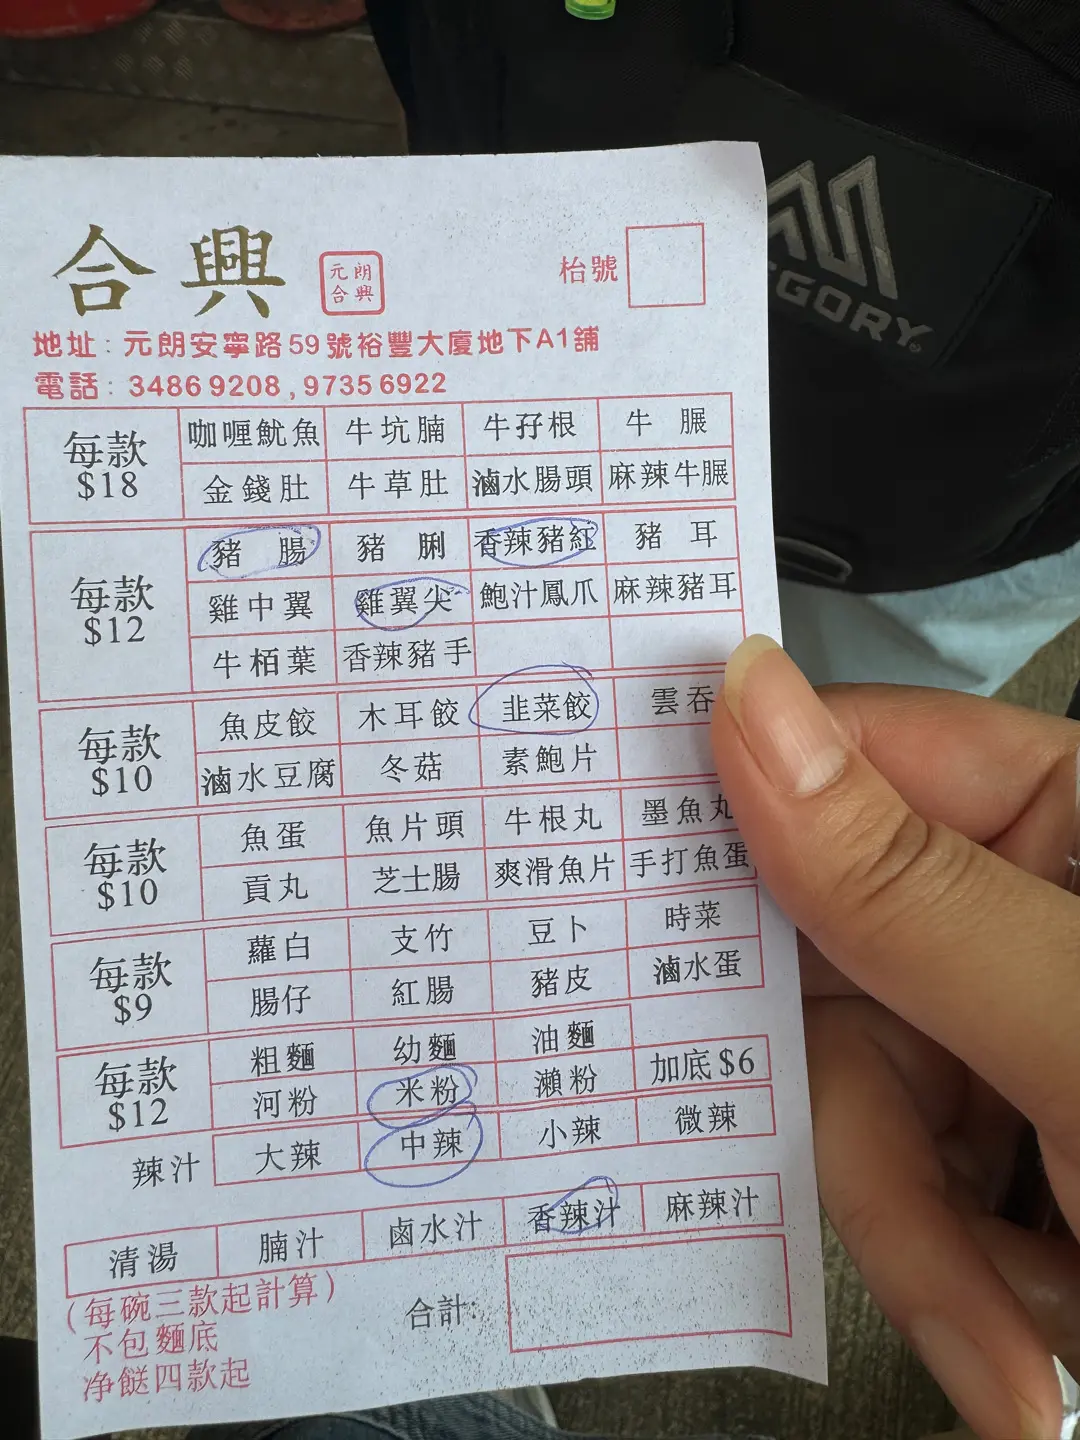 合興
元朗
合興
枱號
地址：元朗安寧路59號裕豐大廈地下A1舖
電話：3486 9208 , 9735 6922
每款 $18
咖喱魷魚 牛坑腩 牛孖根 牛𦟌
金錢肚 牛草肚 滷水腸頭 麻辣牛𦟌
每款 $12
豬腸 豬脷 香辣豬紅 豬耳
雞中翼 雞翼尖 鮑汁鳳爪 麻辣豬耳
牛栢葉 香辣豬手
每款 $10
魚皮餃 木耳餃 韭菜餃 雲吞
滷水豆腐 冬菇 素鮑片
每款 $10
魚蛋 魚片頭 牛根丸 墨魚丸
貢丸 芝士腸 爽滑魚片 手打魚蛋
每款 $9
蘿白 支竹 豆卜 時菜
腸仔 紅腸 豬皮 滷水蛋
每款 $12
粗麵 幼麵 油麵
河粉 米粉 瀨粉 加底 $6
辣汁 大辣 中辣 小辣 微辣
清湯 腩汁 鹵水汁 香辣汁 麻辣汁
（每碗三款起計算）
不包麵底
净餸四款起
合計:
GORY